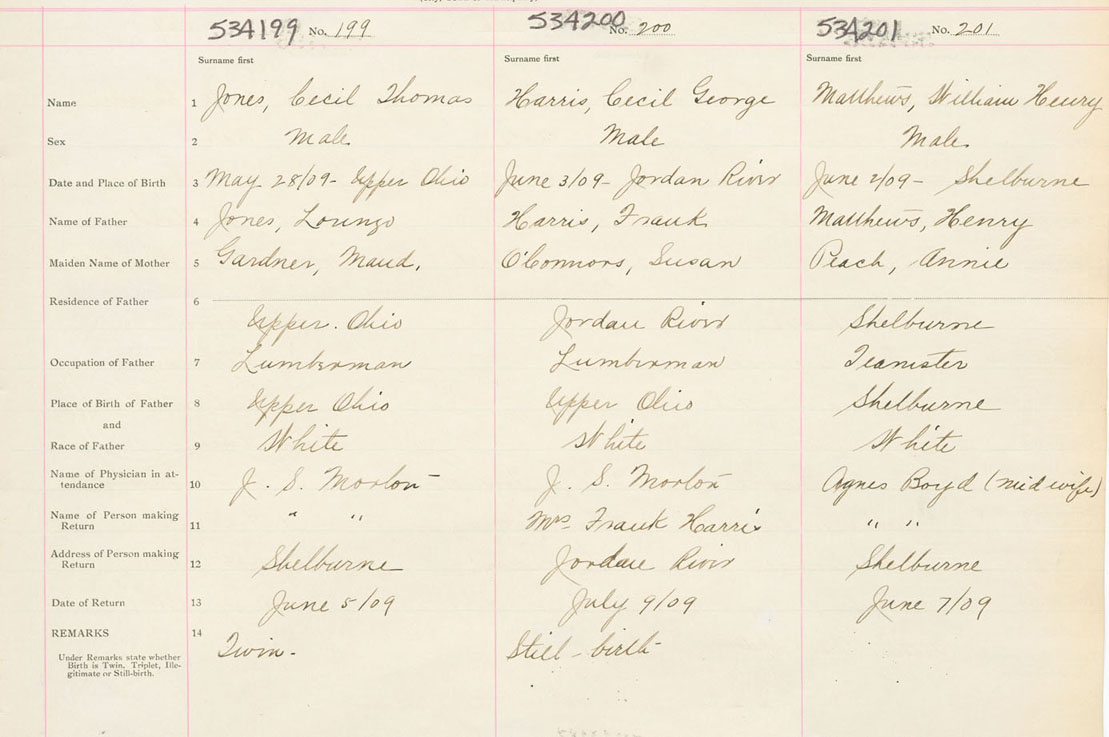 534199 No. 199 534200 No. 200 534201 No. 201
Surname first Surname first Surname first
Name 1 Jones, Cecil Thomas Harris, Cecil George Matthews, William Henry
Sex 2 Male Male Male
Date and Place of Birth 3 May 28/09 - Upper Ohio June 3/09 - Jordan River June 2/09 - Shelburne
Name of Father 4 Jones, Lorenzo Harris, Frank Matthews, Henry
Maiden Name of Mother 5 Gardner, Maud, O'Connors, Susan Peach, Annie
Residence of Father 6
Upper Ohio Jordan River Shelburne
Occupation of Father 7 Lumberman Lumberman Teamster
Place of Birth of Father 8 Upper Ohio Upper Ohio Shelburne
and
Race of Father 9 White White White
Name of Physician in at-
tendance 10 J. S. Morton J. S. Morton Agnes Boyd (midwife)
Name of Person making
Return 11 " " Mrs Frank Harris " "
Address of Person making
Return 12 Shelburne Jordan River Shelburne
Date of Return 13 June 5/09 July 9/09 June 7/09
REMARKS 14 Twin - Still-birth
Under Remarks state whether
Birth is Twin, Triplet, Ille-
gitimate or Still-birth.